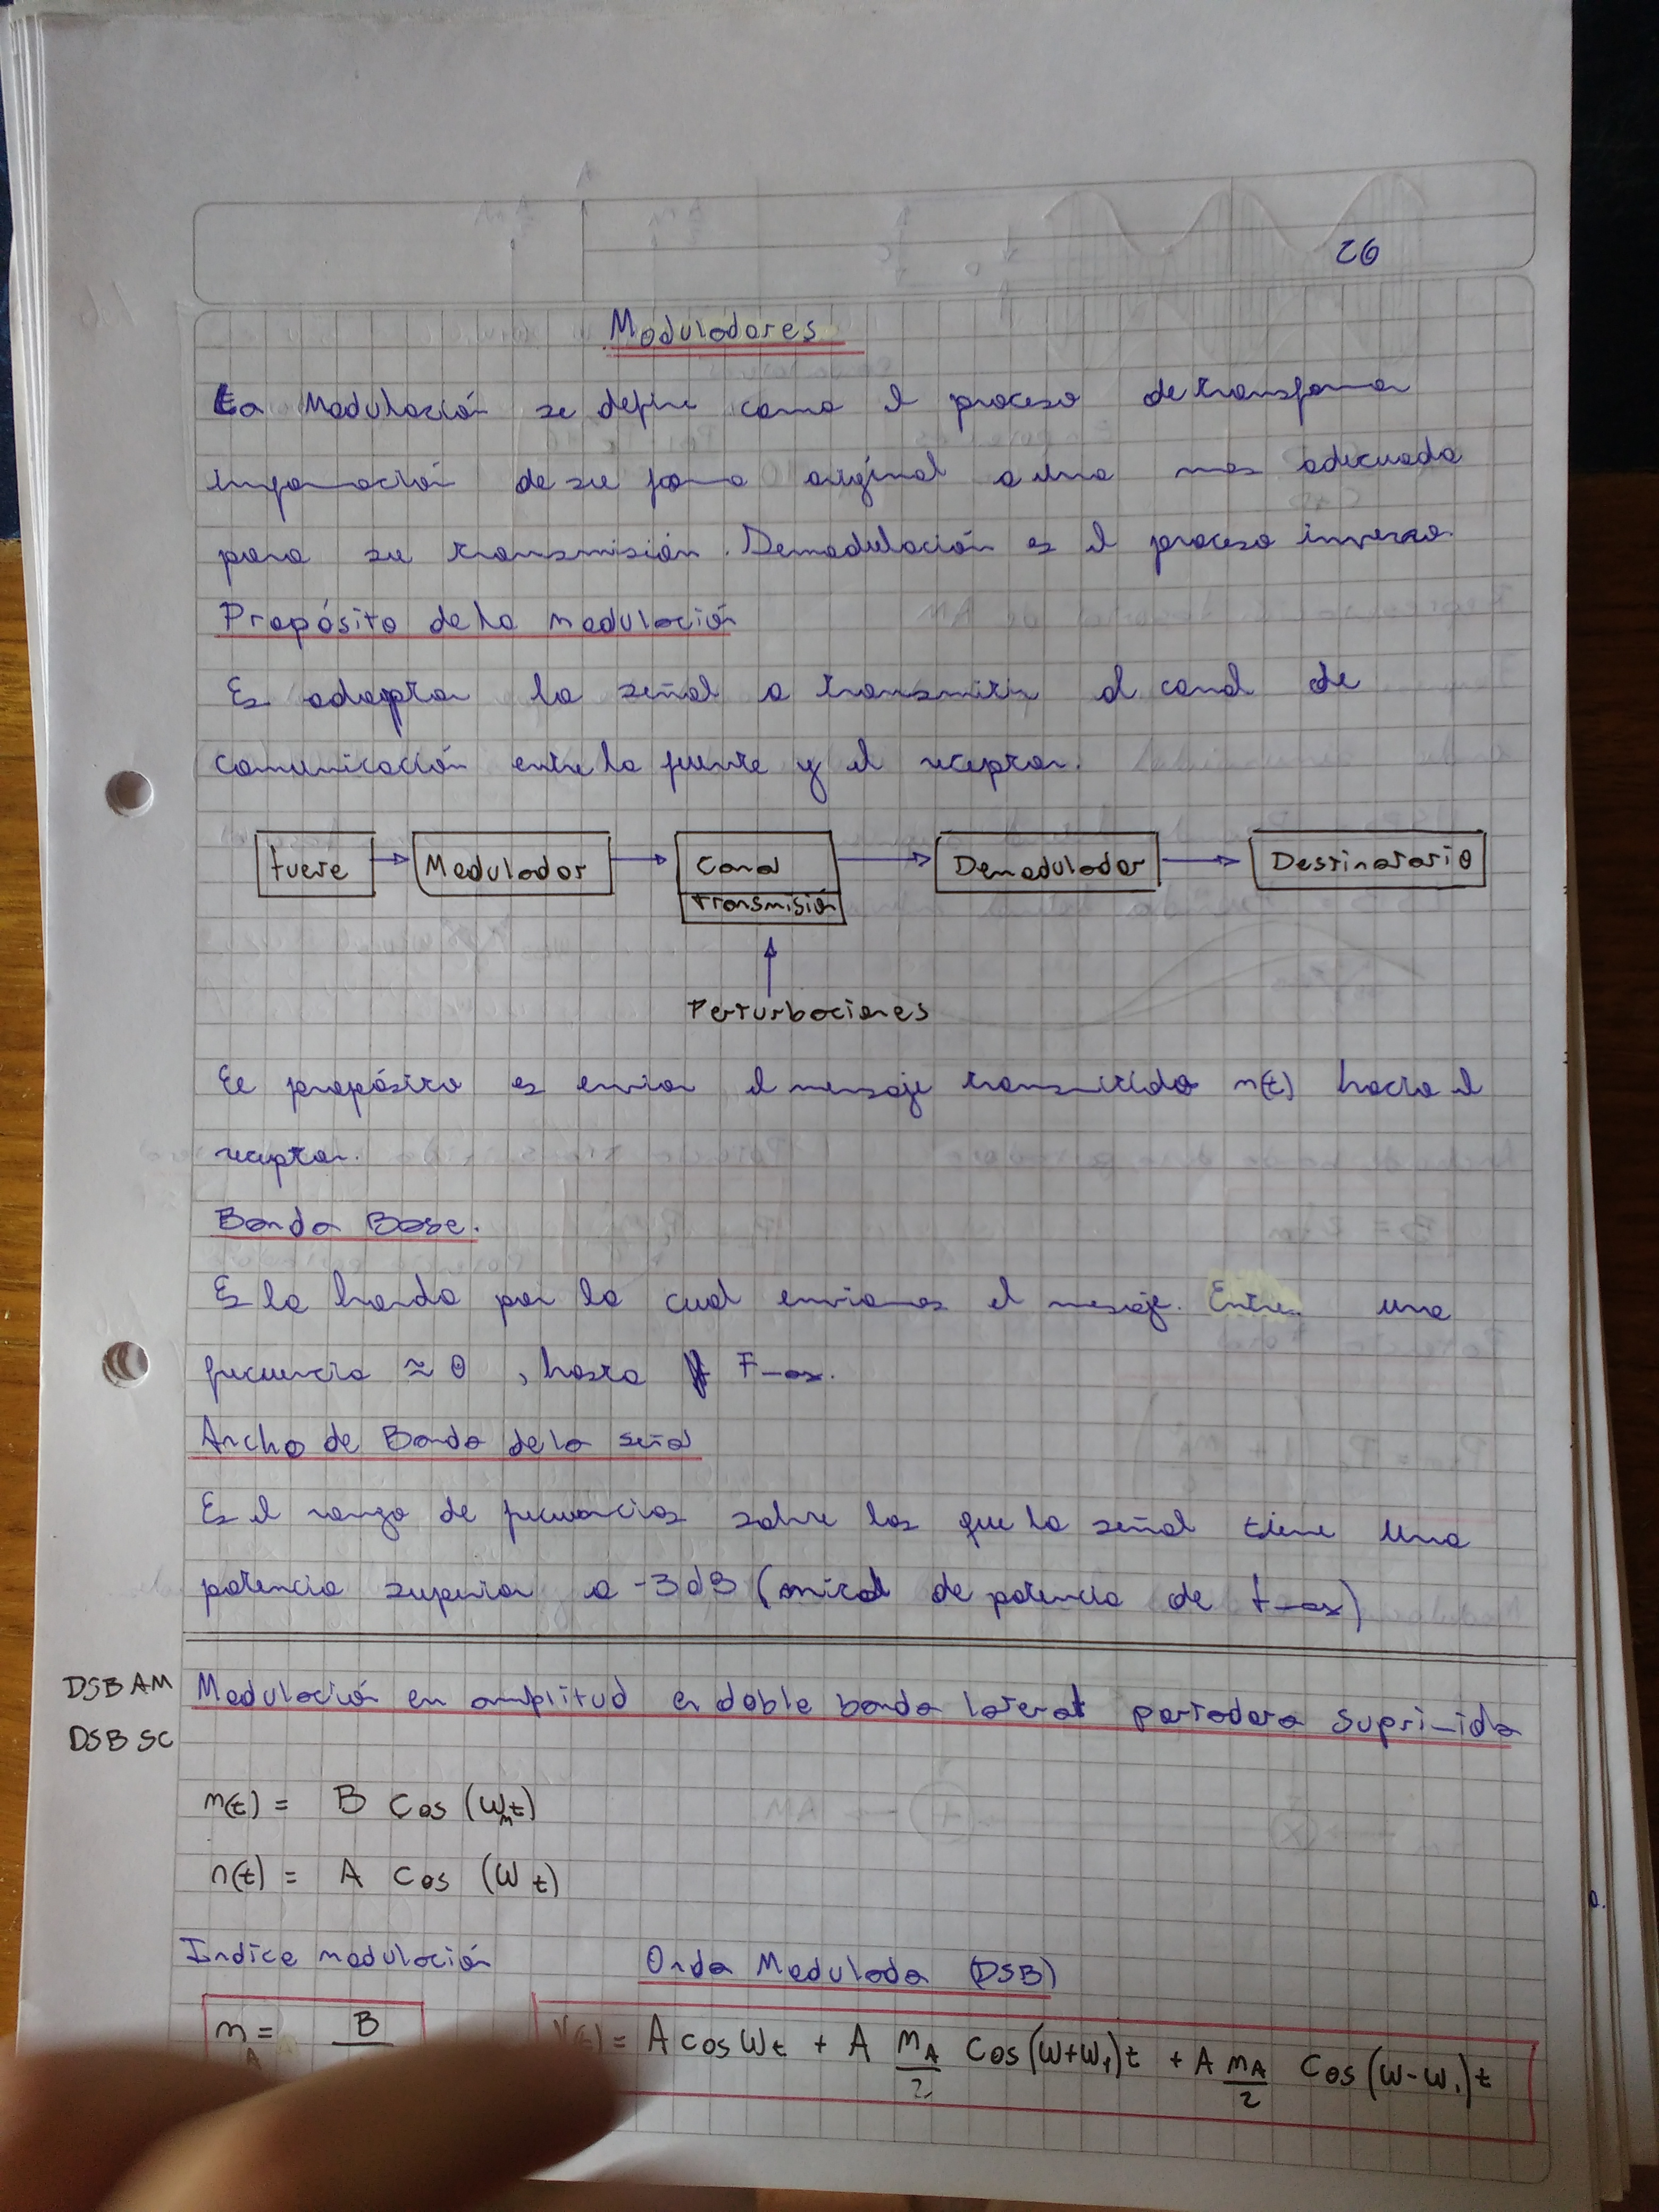 26
Moduladores
La Modulación se define como el proceso de transformar
información de su forma original a una mas adecuada
para su transmisión. Demodulación es el proceso inverso.
Propósito de la modulación
Es adaptar la señal a transmitir al canal de
comunicación entre la fuente y el receptor.
fuete Modulador Canal Demodulador Destinatario
transmisión
Perturbaciones
El propósito es enviar el mensaje transmitido m(t) hacia el
receptor.
Banda Base.
Es la banda por la cual enviamos el mesaje. Entre una
frecuencia ≈ 0 , hasta Fmax.
Ancho de Banda de la señal
Es el rango de frecuencias sobre las que la señal tiene una
potencia superior a -3dB (mitad de potencia de fmax)
DSB AM Modulación en amplitud en doble banda lateral portadora suprimida
DSB SC
m(t) = B Cos (ωm t)
n(t) = A Cos (ω t)
Indice modulación Onda Modulada (DSB)
mA = B
= A cos ωt + A mA/2 Cos(ω+ω1)t + A mA/2 Cos(ω-ω1)t